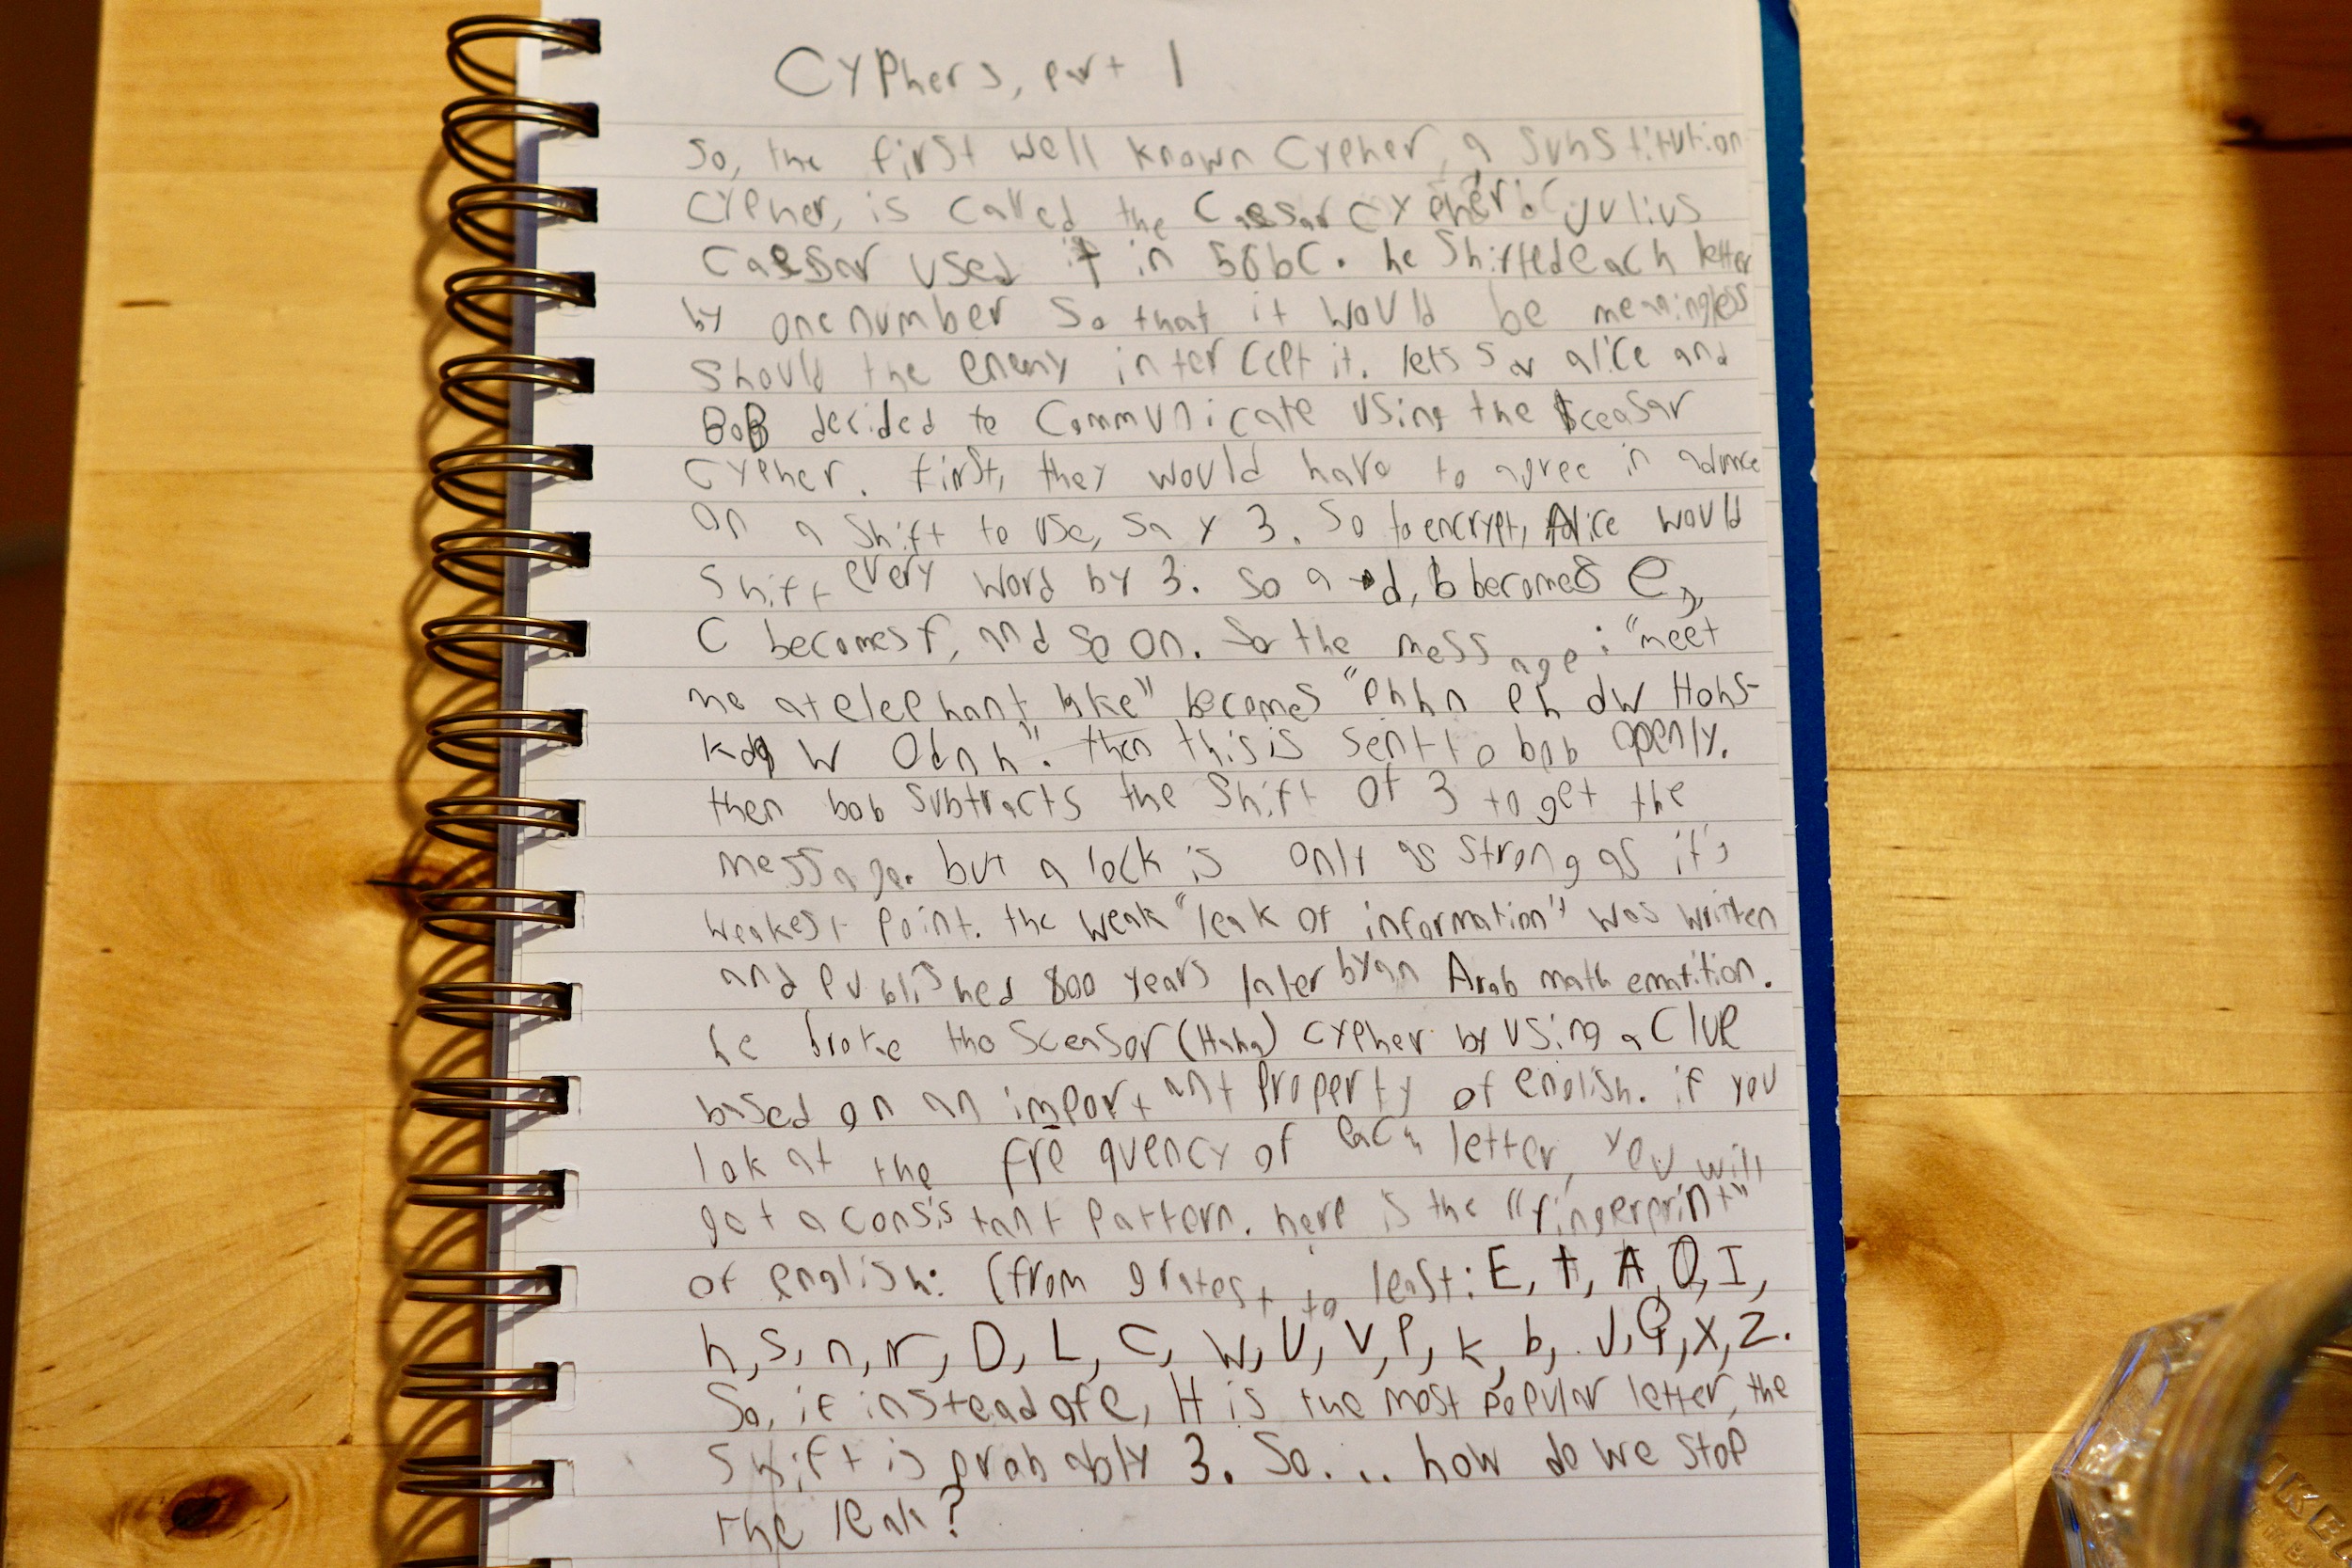 Cyphers, part 1
So, the first well known Cypher, a Substitution
Cypher, is called the Caesar cypher. Julius
Caesar used it in 58bC. he Shifted each letter
by one number So that it would be meaningless
Should the enemy intercept it. lets Say alice and
BoB decided to Communicate using the Sceasar
Cypher. first, they would have to agree in advance
on a Shift to use, Say 3. So to encrypt, Alice would
Shift every word by 3. So a → d, b becomes e,
C becomes f, and so on. So the message: "meet
me at elephant lake" becomes "phhn ph dw Hohs-
kdq w Odnh". then this is sent to bob openly.
then bob Subtracts the Shift of 3 to get the
message. but a lock is only as strong as it's
weakest point. the weak "leak of information" was written
and published 800 years later by an Arab mathematition.
he broke the Sceasor (Haha) cypher by using a Clue
based on an important Property of english. if you
lok at the frequency of each letter, you will
get a consistant pattern. here is the "fingerprint"
of english: (from gratest to least: E, t, A, O, I,
h, s, n, r, D, L, C, W, U, V, P, k, b, J, Q, X, Z.
So, if instead of e, H is the most popular letter, the
Shift is probably 3. So... how do we stop
the leak?